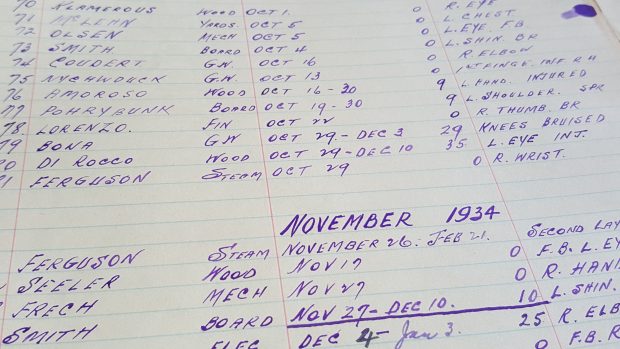 70 KLAMEROUS WOOD OCT 1. 0 R. EYE
71 McLEHN YARDS OCT 5 0 L. CHEST
72 OLSEN MECH OCT 5 0 L. EYE. F.B
73 SMITH BOARD OCT 4 0 L. SHIN. BR
74 COUDERT G.W. OCT 16 0 R. ELBOW
75 NYCHWDUCK G.W OCT 13 0 INF R H
76 AMOROSO WOOD OCT 16-30 9 L. HAND. INJURED
77 POHRYBUNK BOARD OCT 19-30 9 L. SHOULDER. SPR
78. LORENZO. FIN OCT 22 0 R. THUMB. BR
79 BONA G.W OCT 29-DEC 3 29 KNEES BRUISED
80 DI ROCCO WOOD OCT 29-DEC 10 35 L. EYE INJ.
81 FERGUSON STEAM OCT 29 0 R. WRIST.
NOVEMBER 1934
FERGUSON STEAM NOVEMBER 26. FEB 21. SECOND LAY
SEELER WOOD NOV 17 0 F.B. L. EY
FRECH MECH NOV 27 0 R. HAN
SMITH BOARD NOV 27-DEC 10. 10 L. SHIN.
ELEC DEC 4- Jan 3. 25 R. ELB
0 F.B. R